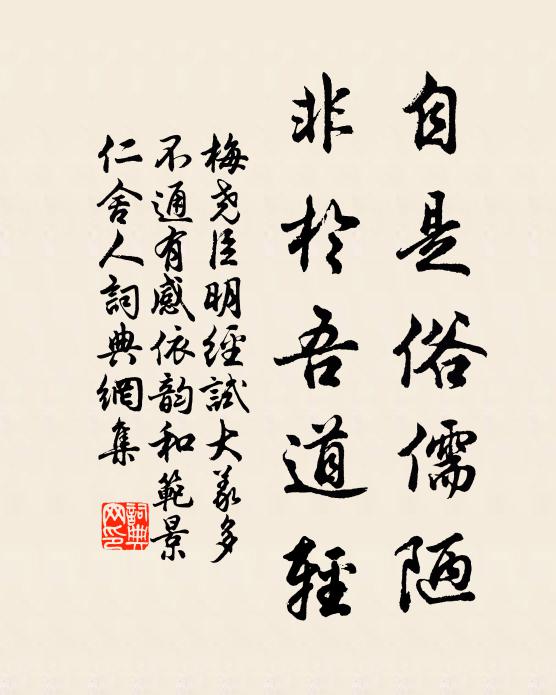 自是俗儒陋
非於吾道輕
梅堯臣明經試大義多
不通有感依韵和範景
仁舍人詞典網集
詞典
网印